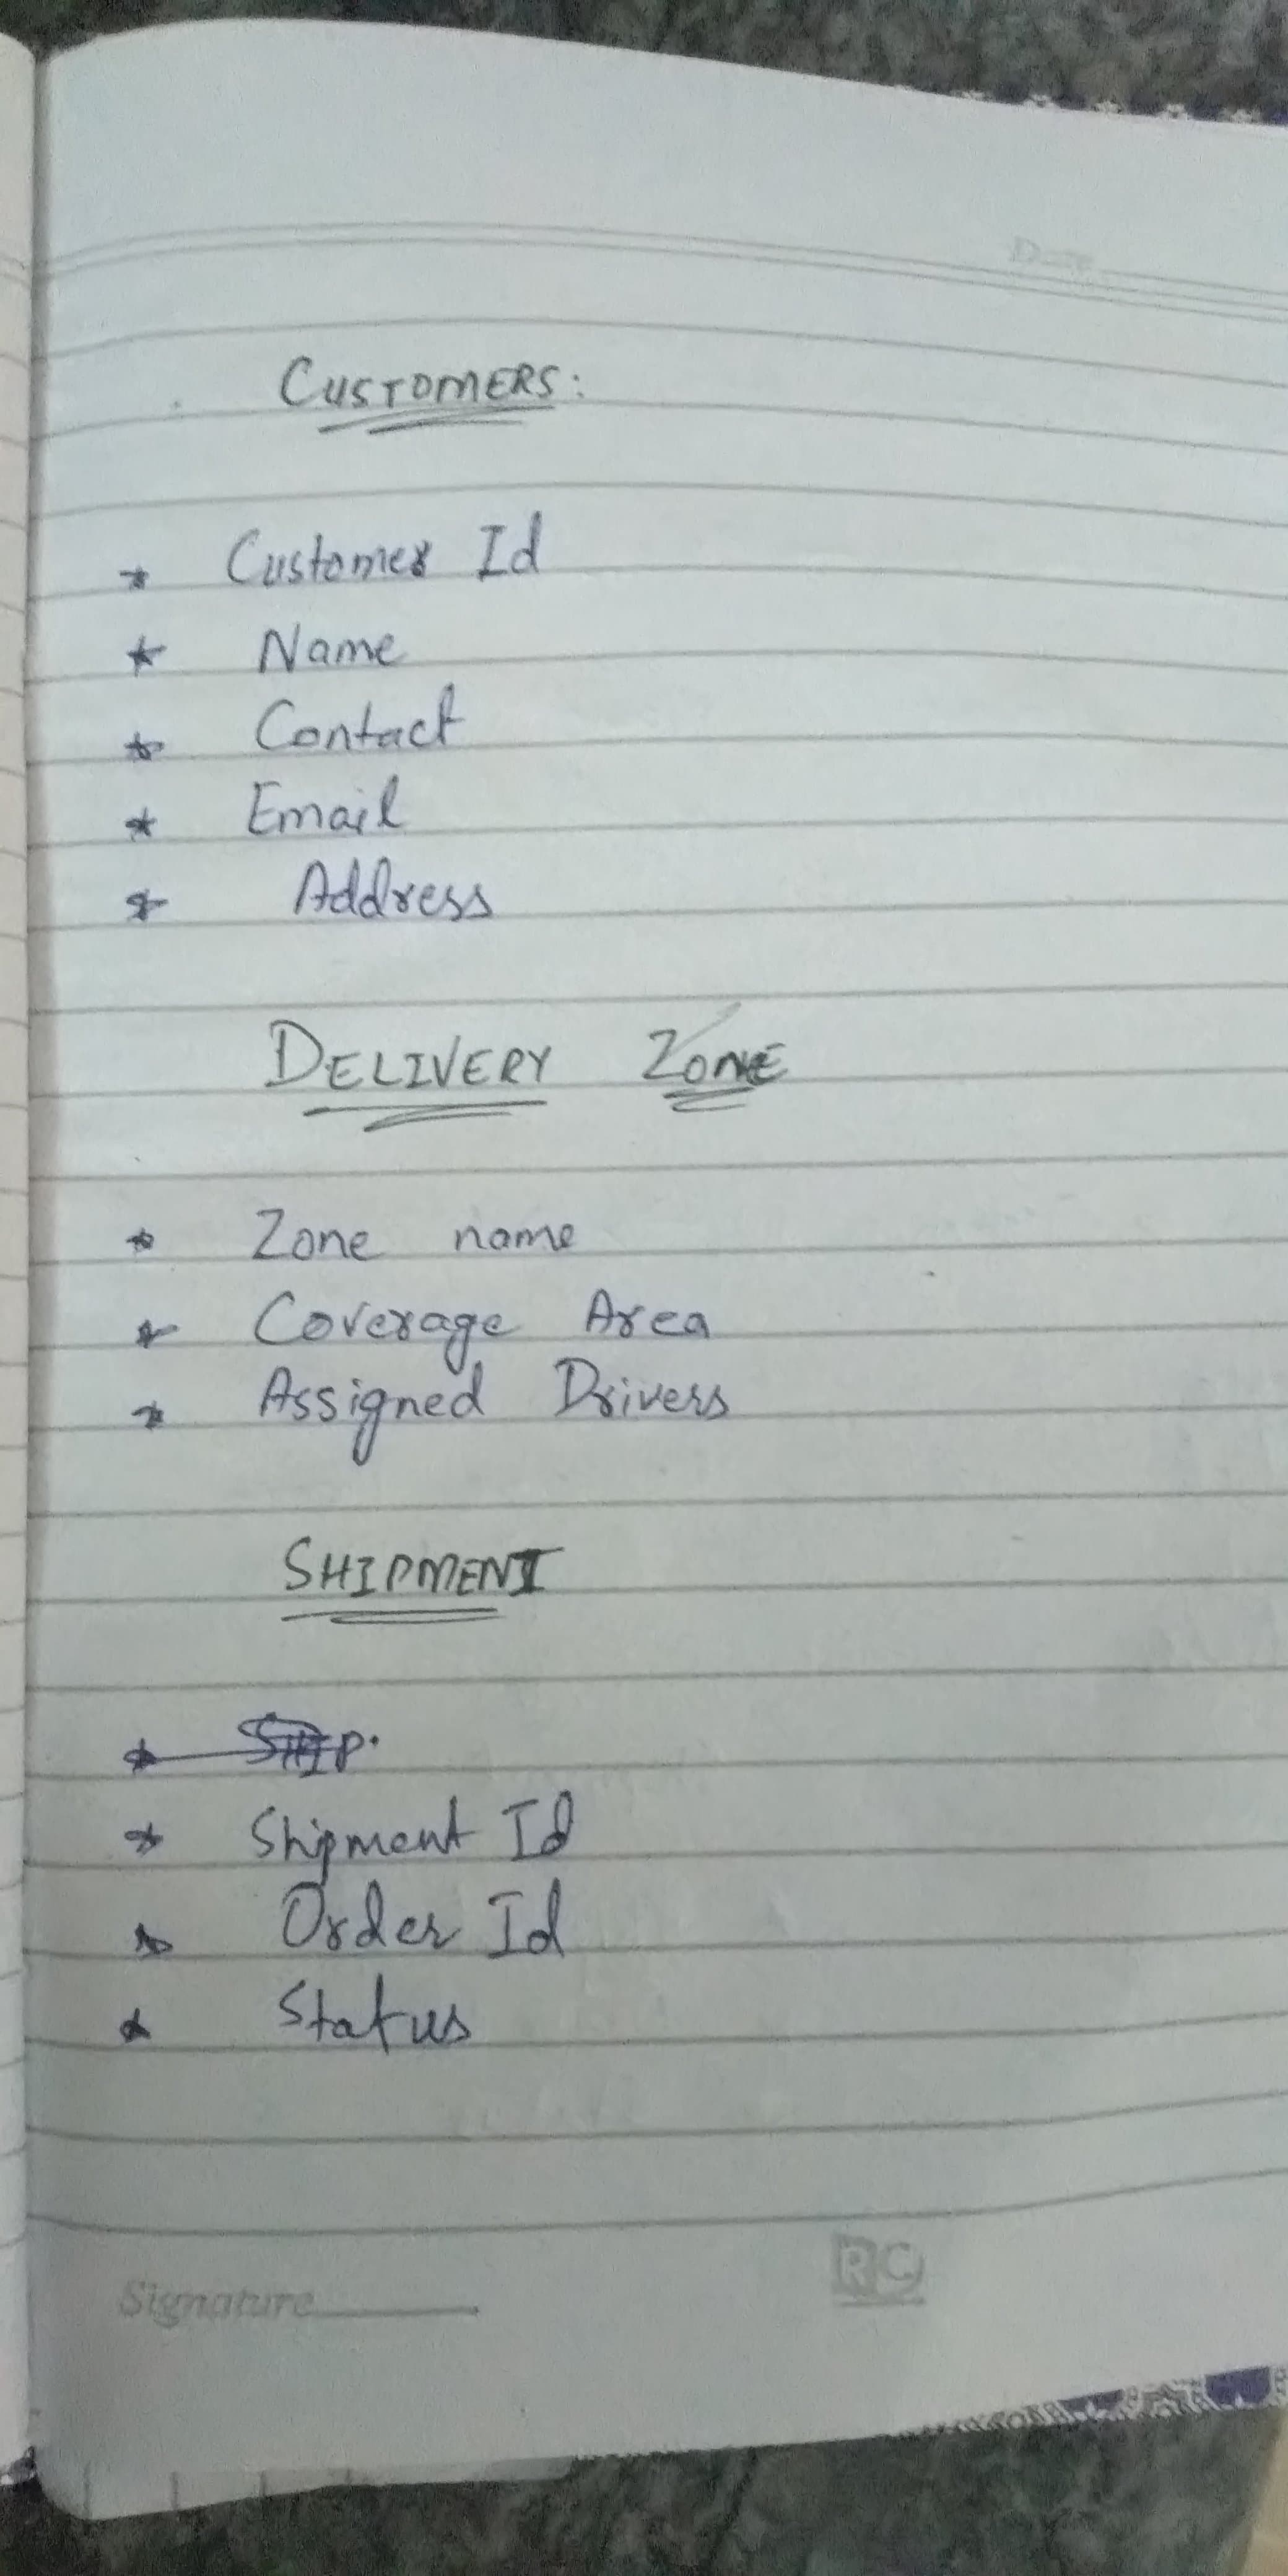 Date
CUSTOMERS:
* Customer Id
* Name
* Contact
* Email
* Address
DELIVERY ZONE
* Zone name
* Coverage Area
* Assigned Drivers
SHIPMENT
* SHIP.
* Shipment Id
* Order Id
* Status
Signature
RC